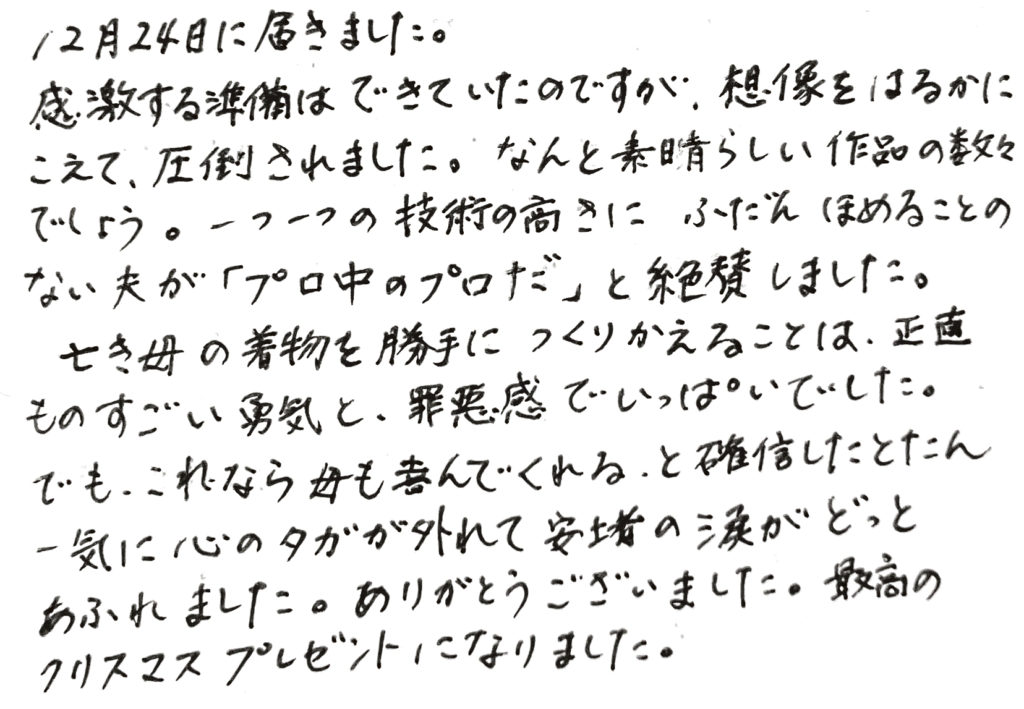 12月24日に届きました。
感激する準備はできていたのですが、想像をはるかに
こえて、圧倒されました。なんと素晴らしい作品の数々
でしょう。一つ一つの技術の高さに ふだん ほめることの
ない夫が「プロ中のプロだ」と絶賛しました。
亡き母の着物を勝手に つくりかえることは、正直
ものすごい勇気と、罪悪感でいっぱいでした。
でも、これなら母も喜んでくれる、と確信したとたん
一気に心のタガが外れて安堵の涙がどっと
あふれました。ありがとうございました。最高の
クリスマスプレゼントになりました。